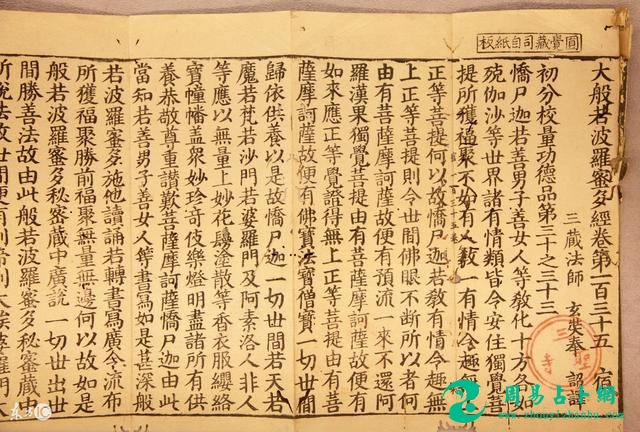 圓覺藏司自紙板
大般若波羅蜜多經卷第一百三十五 宿
三藏法師 玄奘奉 詔譯
初分校量功德品第三十之三十三
憍尸迦若善男子善女人等教化十方各如
殑伽沙等世界諸有情類皆令安住獨覺菩
提所獲福聚不如有人教一有情令趣無上
正等菩提何以故憍尸迦若教有情令趣無
上正等菩提則令世間佛眼不斷所以者何
由有菩薩摩訶薩故便有預流一來不還阿
羅漢果獨覺菩提由有菩薩摩訶薩故便有
如來應正等覺證得無上正等菩提由有菩
薩摩訶薩故便有佛寶法寶僧寶一切世間
歸依供養以是故憍尸迦一切世間若天若
魔若梵若沙門若婆羅門及阿素洛人非人
等應以無量上妙花鬘塗散等香衣服纓絡
寶幢幡蓋眾妙珍奇伎樂燈明盡諸所有供
養恭敬尊重讚歎菩薩摩訶薩憍尸迦由此
當知若善男子善女人等書寫如是甚深般
若波羅蜜多施他讀誦若轉書寫廣令流布
所獲福聚勝前福聚無量無邊何以故如是
般若波羅蜜多秘密藏中廣說一切世出世
間勝善法故由此般若波羅蜜多秘密藏中
所說法故世間便有剎帝利大族婆羅門
三聖寺
周易占卜網
www.zhouyizhanbu.com